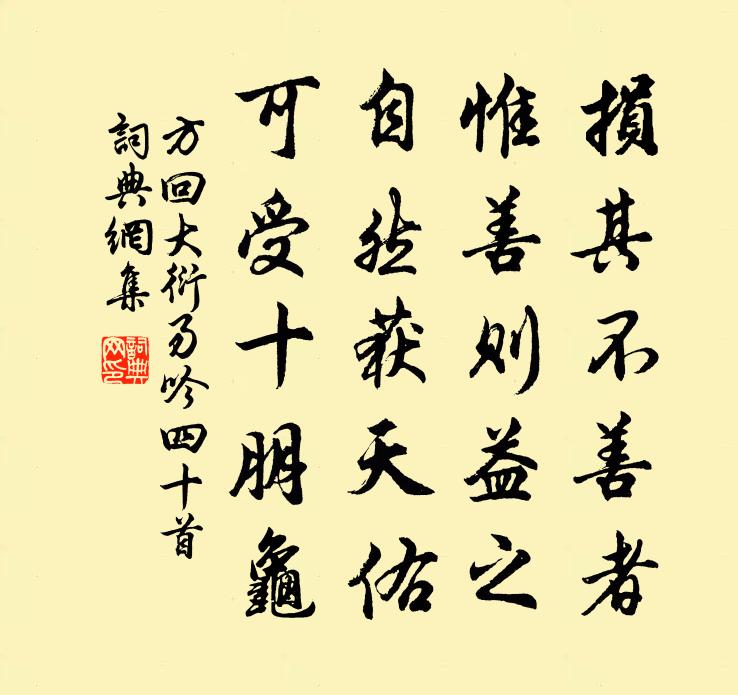 損其不善者
惟善則益之
自然获天佑
可受十朋龜
方回大衍易吟四十首
詞典網集
詞典網印